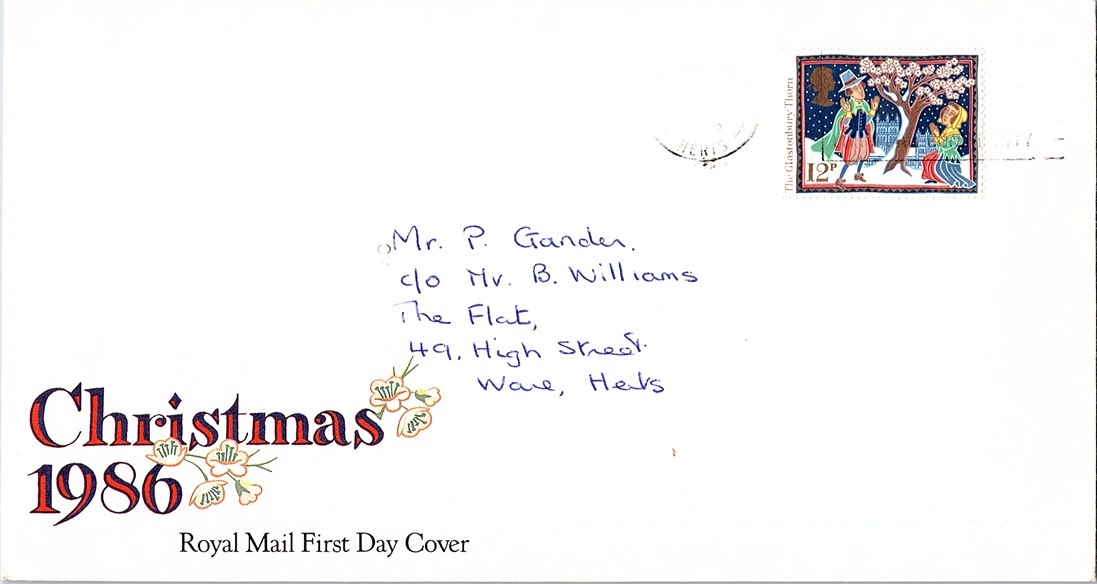 The Glastonbury Thorn
12P
HERTS
Mr. P. Gander.
c/o Mr. B. Williams
The Flat,
49, High Street.
Ware, Herts
Christmas
1986
Royal Mail First Day Cover